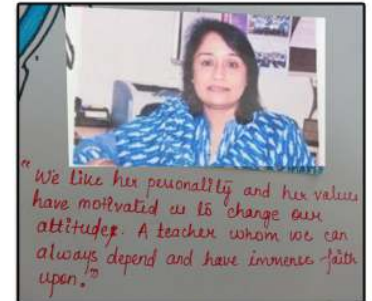 "We like her personality and her values
have motivated us to change our
attitudes. A teacher whom we can
always depend and have immense faith
upon."